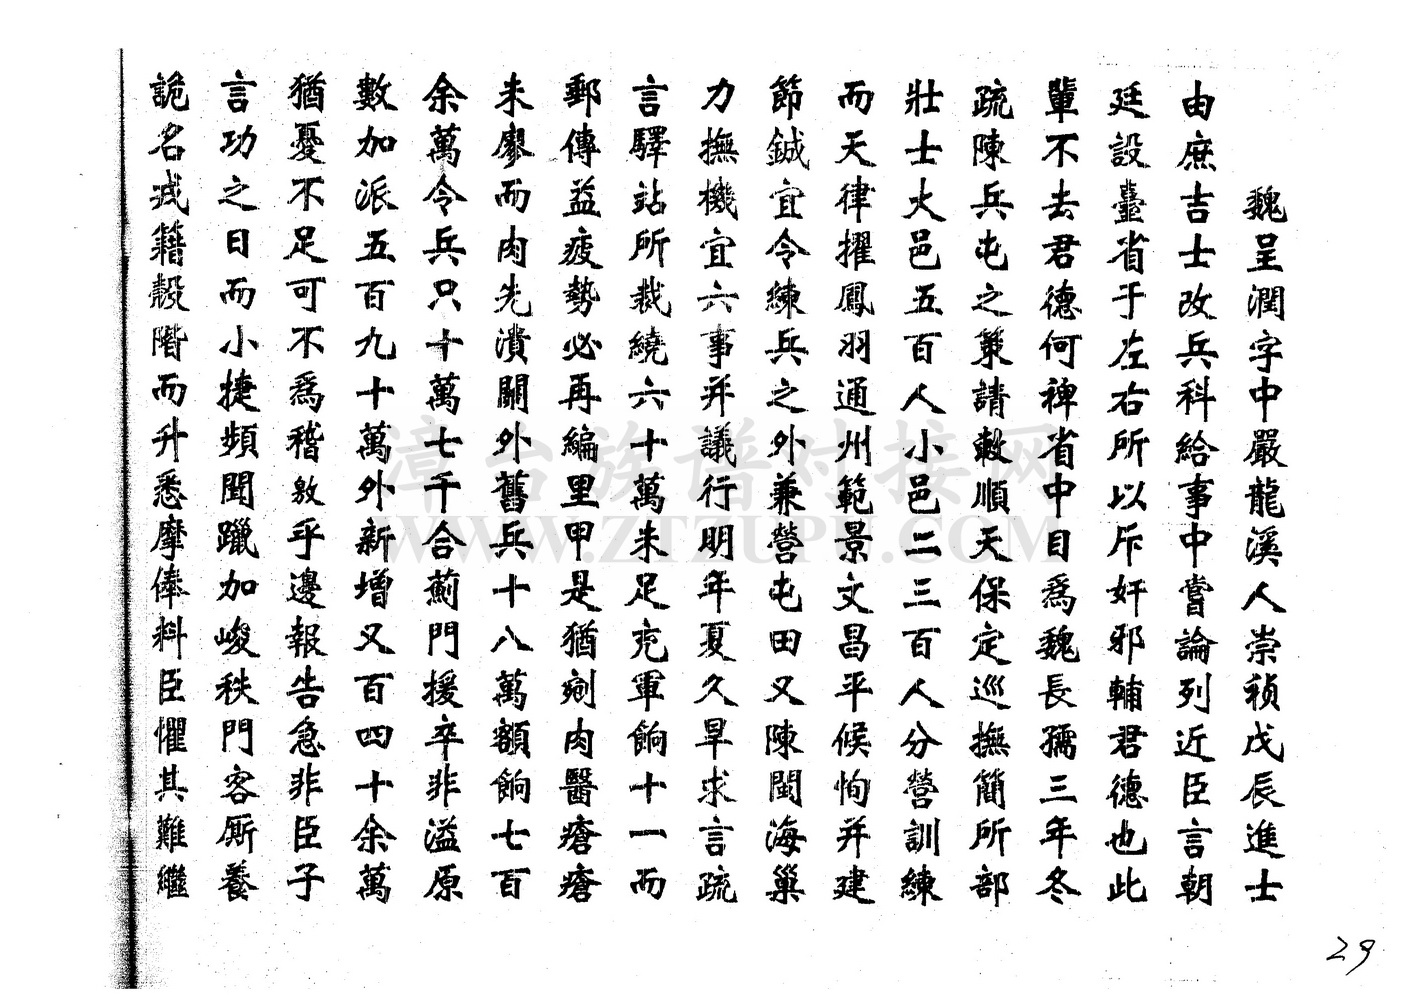 魏呈潤字中嚴龍溪人崇禎戊辰進士
由庶吉士改兵科給事中嘗論列近臣言朝
廷設臺省于左右所以斥奸邪輔君德也此
輩不去君德何裨省中目爲魏長孺三年冬
疏陳兵屯之策請敕順天保定巡撫簡所部
壯士大邑五百人小邑二三百人分營訓練
而天律擢鳳羽通州範景文昌平候恂并建
節鉞宜令練兵之外兼營屯田又陳閩海巢
力撫機宜六事并議行明年夏久旱求言疏
言驛站所裁繞六十萬未足充軍餉十一而
郵傳益疲勢必再編里甲是猶剜肉醫瘡瘡
未廖而肉先潰關外舊兵十八萬額餉七百
余萬令兵只十萬七千合薊門援卒非溢原
數加派五百九十萬外新增又百四十余萬
猶憂不足可不爲稽敫乎邊報告急非臣子
言功之日而小捷頻聞躐加峻秩門客厮養
詭名戎籍殽階而升悉摩俸料臣懼其難繼
漳台族谱对接网
WWW.ZTZUPU.COM
29